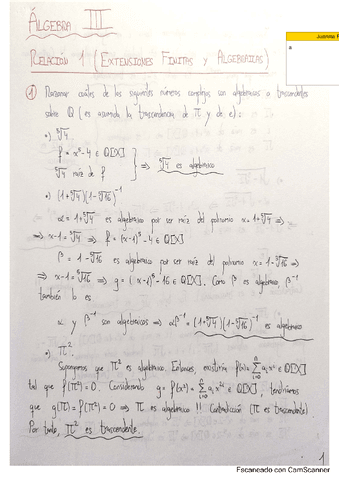 ÁLGEBRA III
RELACIÓN 1 (EXTENSIONES FINITAS Y ALGEBRAICAS)
① Razonar cuáles de los siguientes números complejos son algebraicos o trascendentes
sobre Q (es asumida la trascendencia de π y de e):
a) ⁵√4
f = x⁵-4 ∈ Q[X]
⁵√4 raíz de f } ⟹ ⁵√4 es algebraico
•) (1+⁵√4)(1-⁵√16)⁻¹
α = 1+⁵√4 es algebraico por ser raíz del polinomio x = 1+⁵√4 ⟹
⟹ x-1 = ⁵√4 ⟹ f = (x-1)⁵-4 ∈ Q[X]
β = 1-⁵√16 es algebraico por ser raíz del polinomio x = 1-⁵√16 ⟹
⟹ x-1 = ⁵√16 ⟹ g = (x-1)⁵-16 ∈ Q[X]. Como β es algebraico, β⁻¹
también lo es.
α y β⁻¹ son algebraicos ⟹ αβ⁻¹ = (1+⁵√4)(1-⁵√16)⁻¹ es algebraico
•) π².
Supongamos que π² es algebraico. Entonces, existiría f(x) = Σⁿᵢ₌₀ aᵢxⁱ ∈ Q[X]
tal que f(π²) = 0. Considerando g = f(x²) = Σⁿᵢ₌₀ aᵢx²ⁱ ∈ Q[X], tendríamos
que g(π) = f(π²) = 0 ⟹ π es algebraico !! Contradicción (π es trascendente).
Por tanto, π² es trascendente
1
Escaneado con CamScanner
a